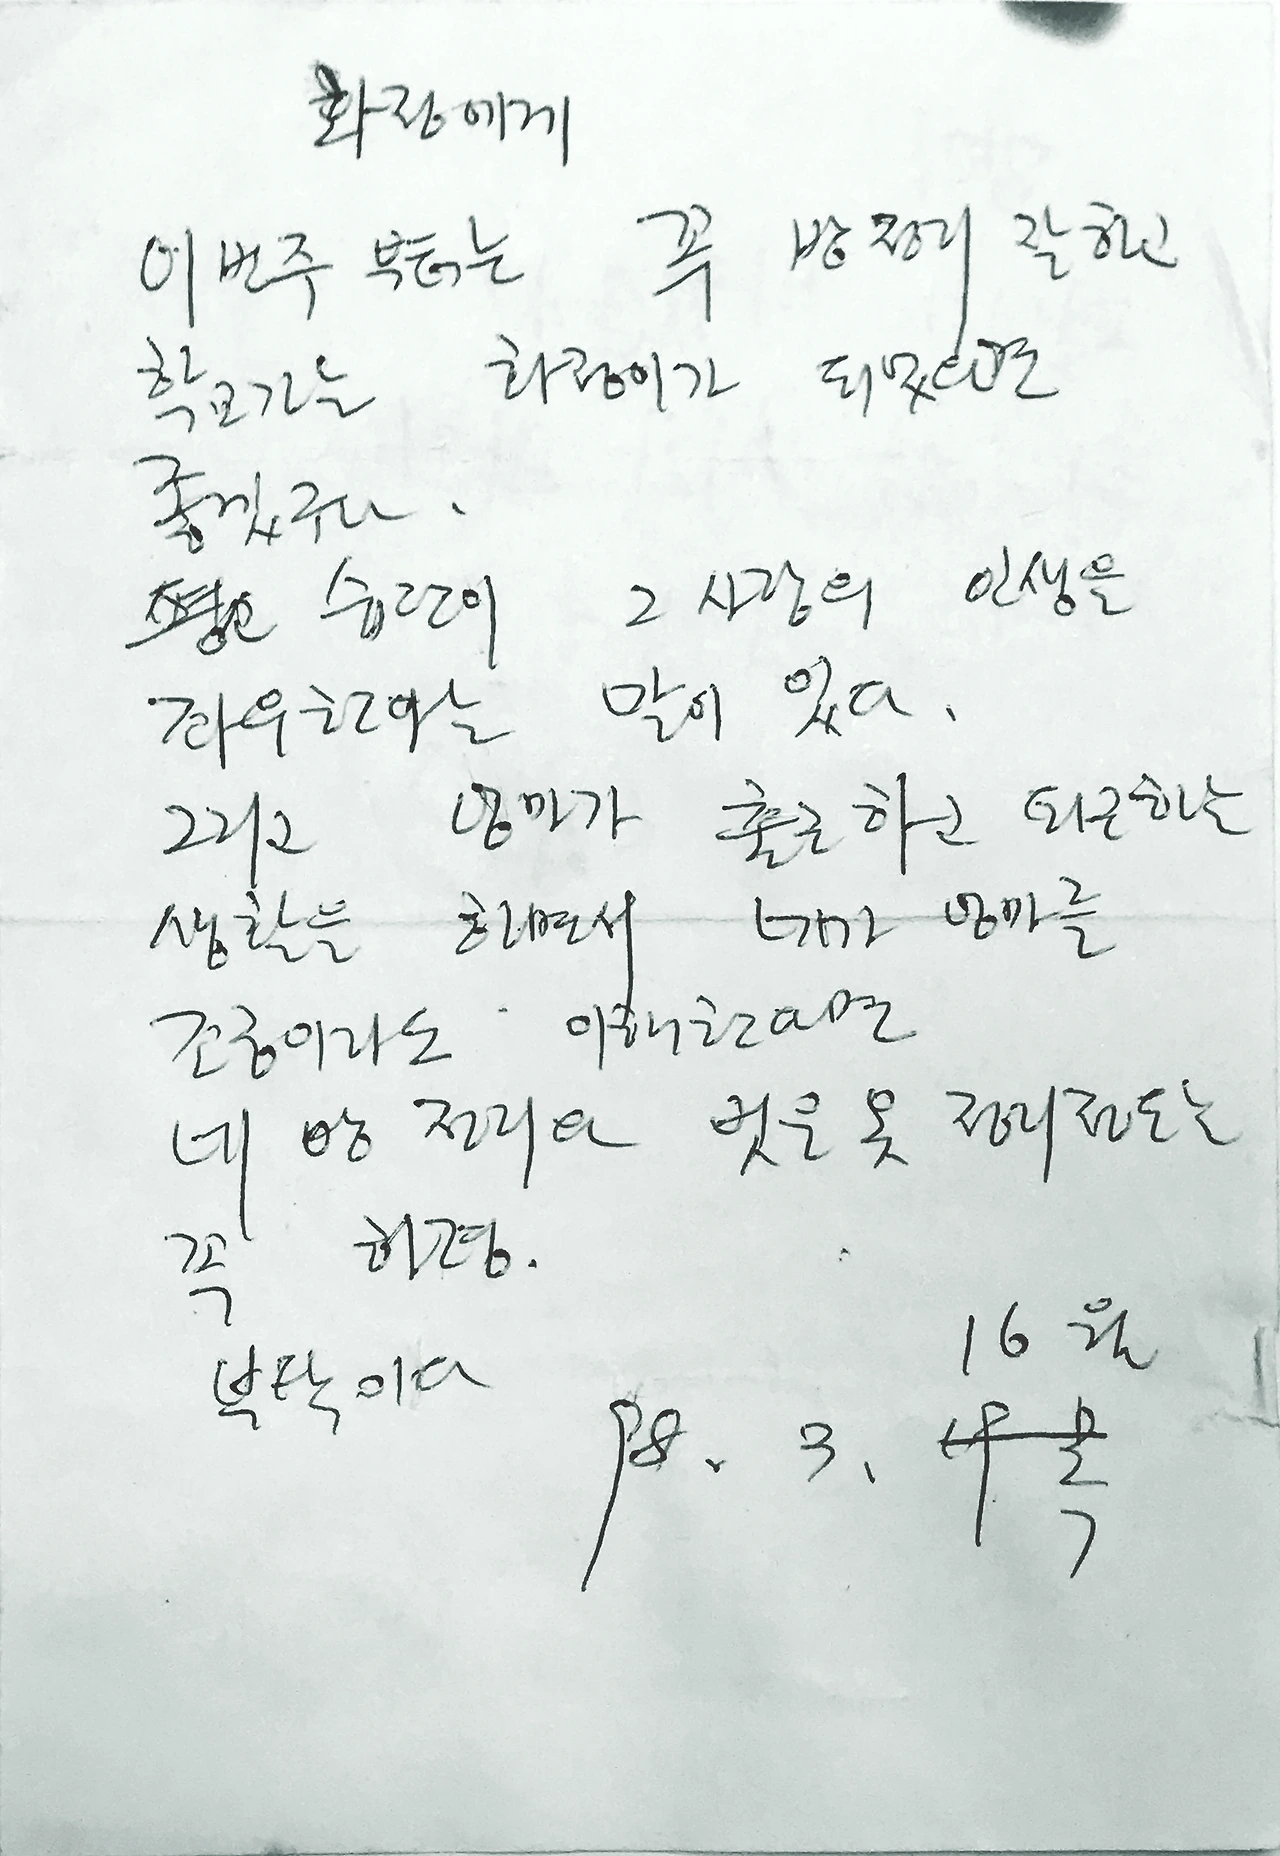 화정에게
이번주 부터는 꼭 방정리 잘하고
학교가는 화정이가 되었으면
좋겠구나.
습관이 그 사람의 인생을
좌우한다는 말이 있다.
그리고 엄마가 출근하고 퇴근하는
생활을 하면서 네가 엄마를
조금이라도 이해한다면
네 방 정리와 벗은 옷 정리정도는
꼭 하렴.
부탁이다
16 월
98. 3.